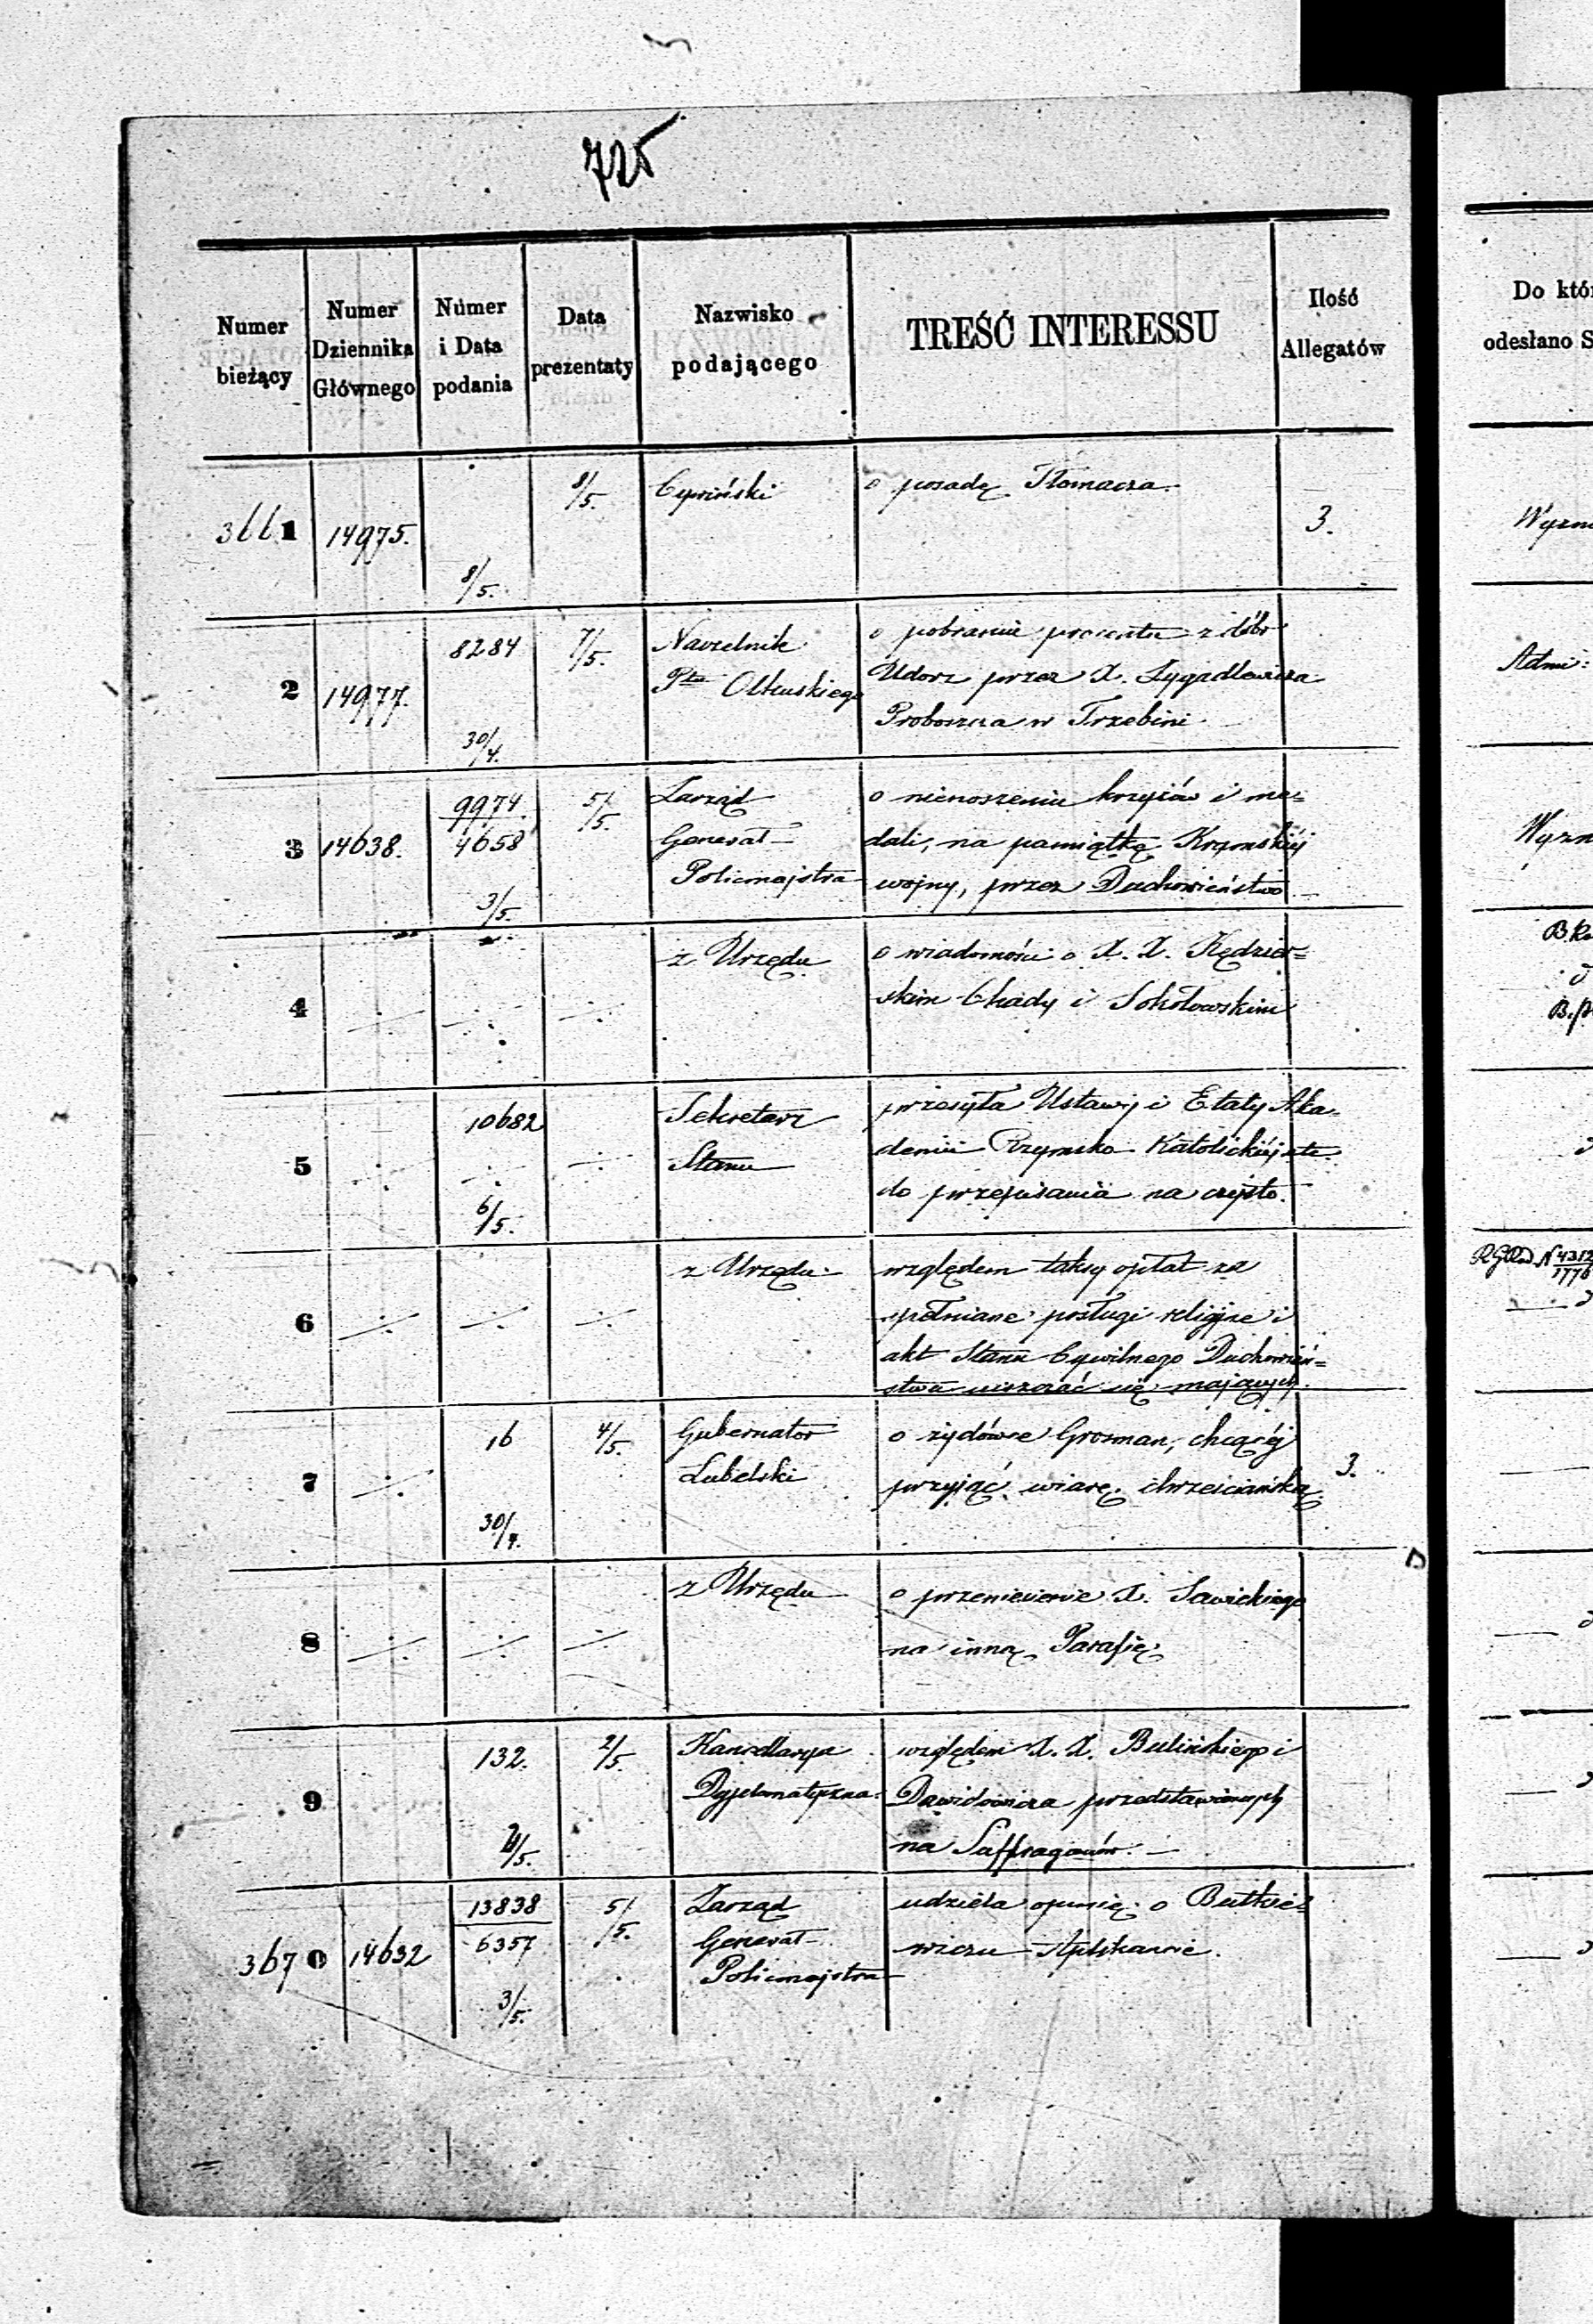 725
Numer bieżący
Numer Dziennika Głównego
Numer i Data podania
Data prezentaty
Nazwisko podającego
TREŚĆ INTERESSU
Ilość Allegatów
Do któ
odesłano S
3661 14975. 8/5. 8/5. Cywiński o posadę Tłomacza. 3.
2 14977. 8284 30/4. 7/5. Naczelnik
Ptu Olkuskiego
o pobranie procentu z dóbr
Udorz przez X. Zygadlewicza
Proboszcza w Trzebini
Admi:
3 14638. 9974. 4658 3/5. 5/5. Zarząd
Generał
Policmajstra
o nienoszeniu krzyżów i me=
dali, na pamiątkę Krymskiéj
wojny, przez Duchowieństwo
4 z Urzędu
o wiadomości o X. X. Kędzier=
skim Chądy i Sokołowskim
5 10682 6/5. Sekretarz
Stanu
przesyła Ustawy i Etaty Aka=
demii Rzymsko Katolickiéj
do przepisania na czysto.
6 z Urzędu
względem taksy opłat za
spełniane posługi religijne i
akt Stanu Cywilnego Duchowień=
stwu uiszczać się mających.
R.G. N 4312
1776
7 16 30/4. 4/5. Gubernator
Lubelski
o żydówce Grosman, chcącéj
przyjąć wiarę chrześciańską
3.
8 z Urzędu
o przeniesienie X. Sawickiego
na inną Parafię
9 132. 2/5. 2/5. Kancellarya
Dyplomatyczna
względem X. X. Bulińskiego i
Dawidowicza przedstawionych
na Suffraganów.
3670 14632 13838 6357 3/5. 5/5. Zarząd
Generał
Policmajstra
udziela opinię o Butkie=
wiczu Aplikancie.